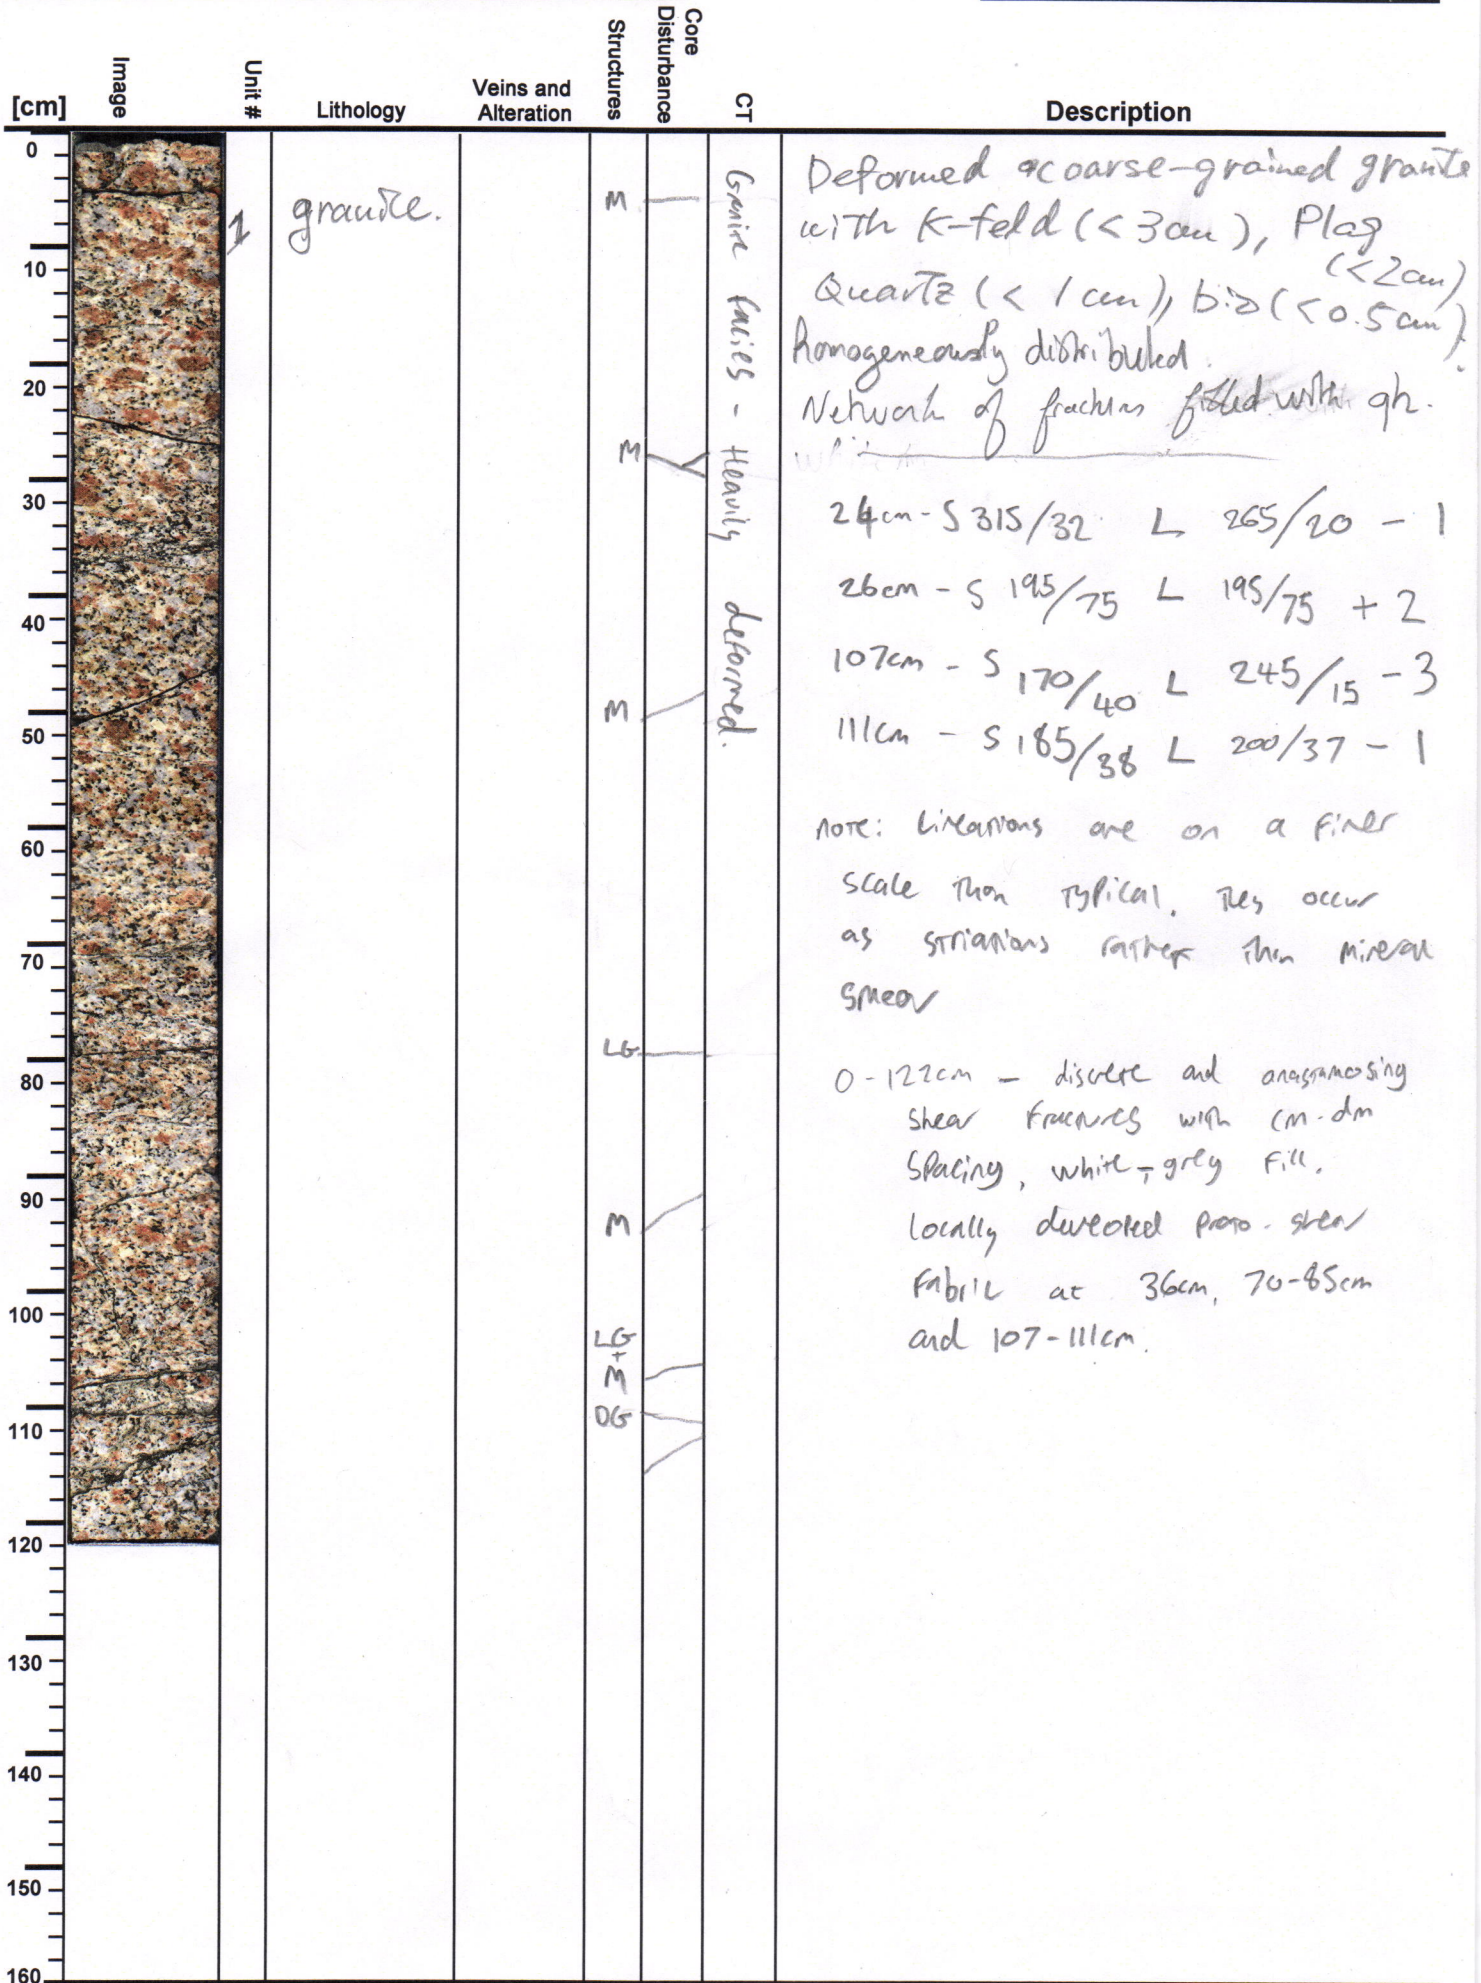 [cm]
Image
Unit #
Lithology
Veins and
Alteration
Structures
Core
Disturbance
CT
Description
0
10
20
30
40
50
60
70
80
90
100
110
120
130
140
150
160
1
granite.
M
M
M
LG
M
LG
+
M
DG
Granite facies - Heavily deformed.
Deformed coarse-grained granite
with K-feld (< 3cm), Plag
(<2cm)
Quartz (< 1 cm), bio (<0.5cm).
homogeneously distributed.
Network of fractures filled with
24cm - S 315/32 L 265/20 - 1
26cm - S 195/75 L 195/75 + 2
107cm - S 170/40 L 245/15 - 3
111cm - S 185/38 L 200/37 - 1
note: Lineations are on a finer
scale than typical. They occur
as striations rather than mineral
smear
0-122cm - discrete and anastamosing
shear fractures with cm-dm
spacing, white-grey fill.
locally proto-shear
fabric at 36cm, 70-85cm
and 107-111cm.